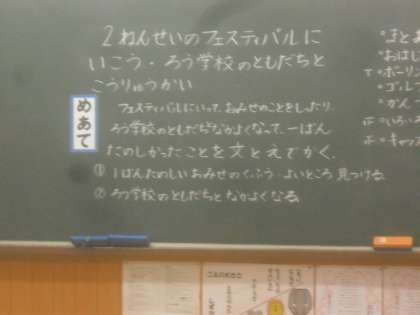 2ねんせいのフェスティバルに
いこう・ろう学校のともだちと
こうりゅうかい
めあて
フェスティバルにいって、おみせのことをしったり、
ろう学校のともだちとなかよくなって、一ばん
たのしかったことを文とえでかく。
① 1ばんたのしいおみせのくふう よいところ 見つける。
② ろう学校のともだちと なかよくなる
まとあ
おはじ
ボーリン
ゴルフ
かん
いろい
キャッ